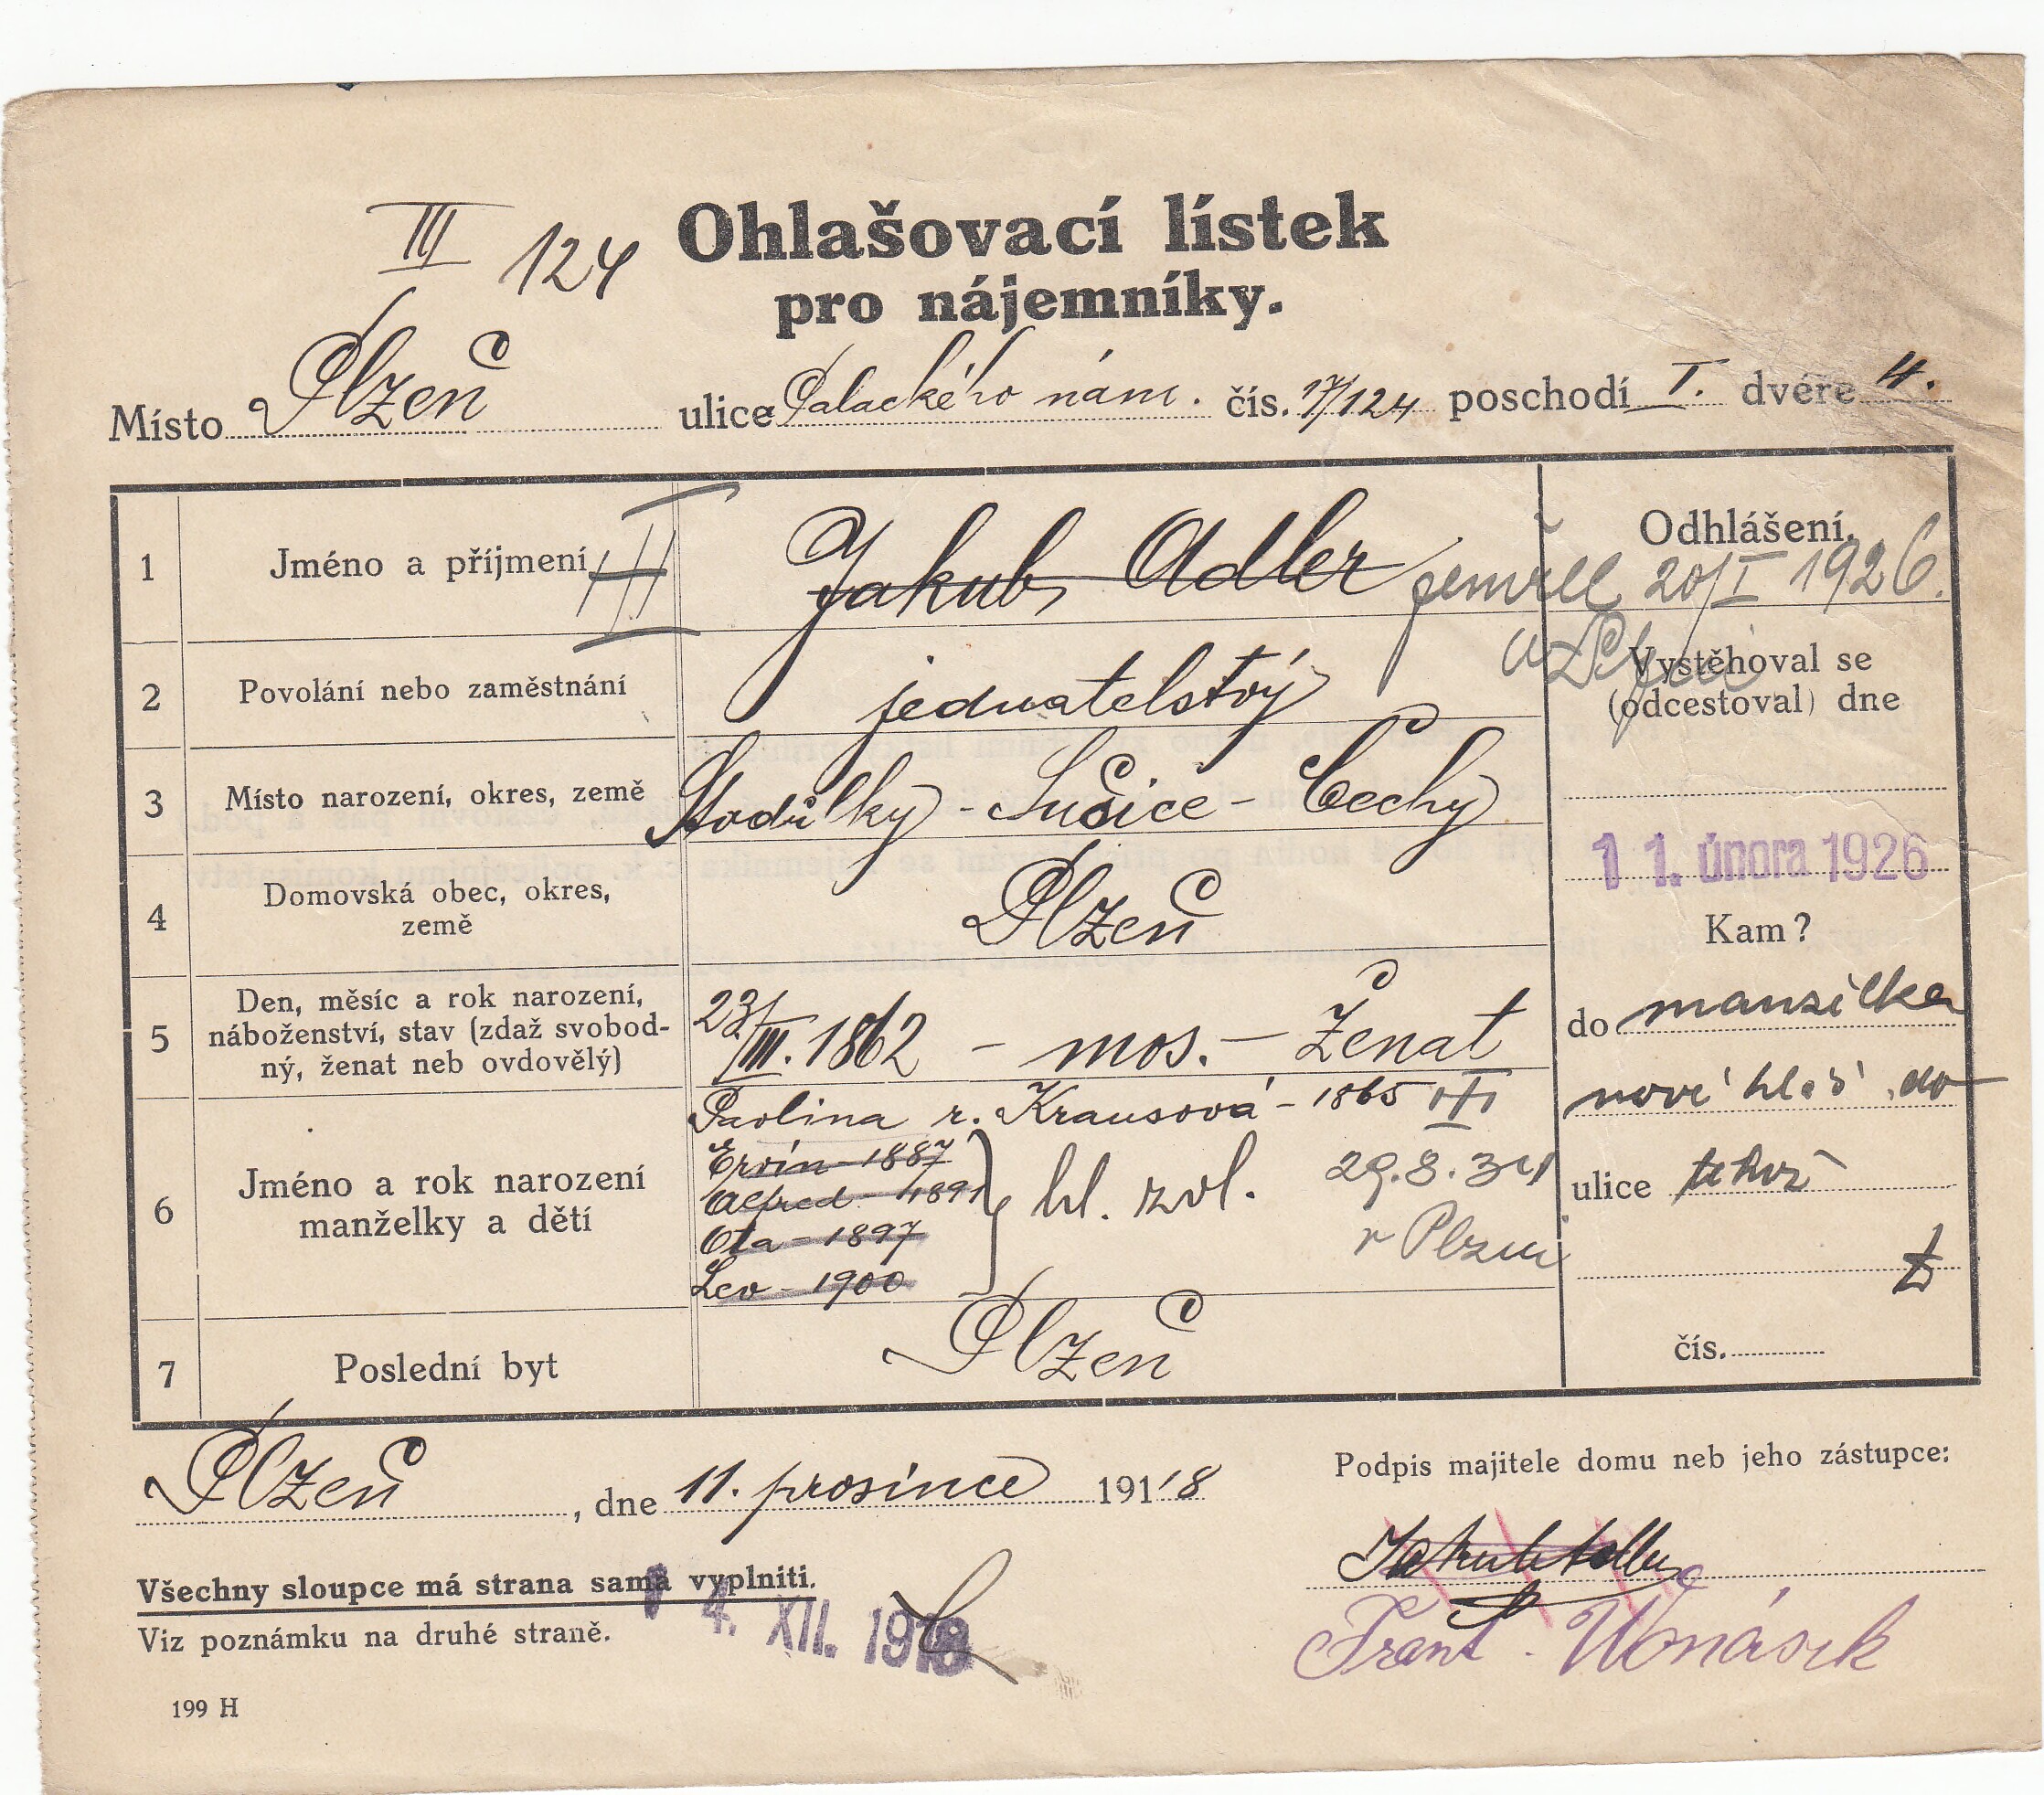 III 124
Ohlašovací lístek
pro nájemníky.
Místo Plzeň ulice Palackého nám. čís. 17/124 poschodí I. dvéře 4.
1 Jméno a příjmení III Jakub Adler zemřel 20/I 1926.
Odhlášení.
v Plzni
2 Povolání nebo zaměstnání jednatelství
Vystěhoval se
(odcestoval) dne
3 Místo narození, okres, země Stodůlky - Sušice - Čechy
11. února 1926
4 Domovská obec, okres,
země
Plzeň
Kam?
5 Den, měsíc a rok narození,
náboženství, stav (zdaž svobod-
ný, ženat neb ovdovělý)
23/III. 1862 - mos. - Ženat
do manželka
nové hláš. do
ulice
čís.
6 Jméno a rok narození
manželky a dětí
Pavlina r. Krausová - 1865 III
Ervín - 1887
Alfred - 1891
Ota - 1897
Lev - 1900
hl. zvl.
29.8.34
v Plzni
7 Poslední byt Plzeň
Plzeň, dne 11. prosince 1918
Podpis majitele domu neb jeho zástupce:
Jakub Adler
Frant.
Všechny sloupce má strana sama vyplniti.
14. XII. 1918
Viz poznámku na druhé straně.
199 H